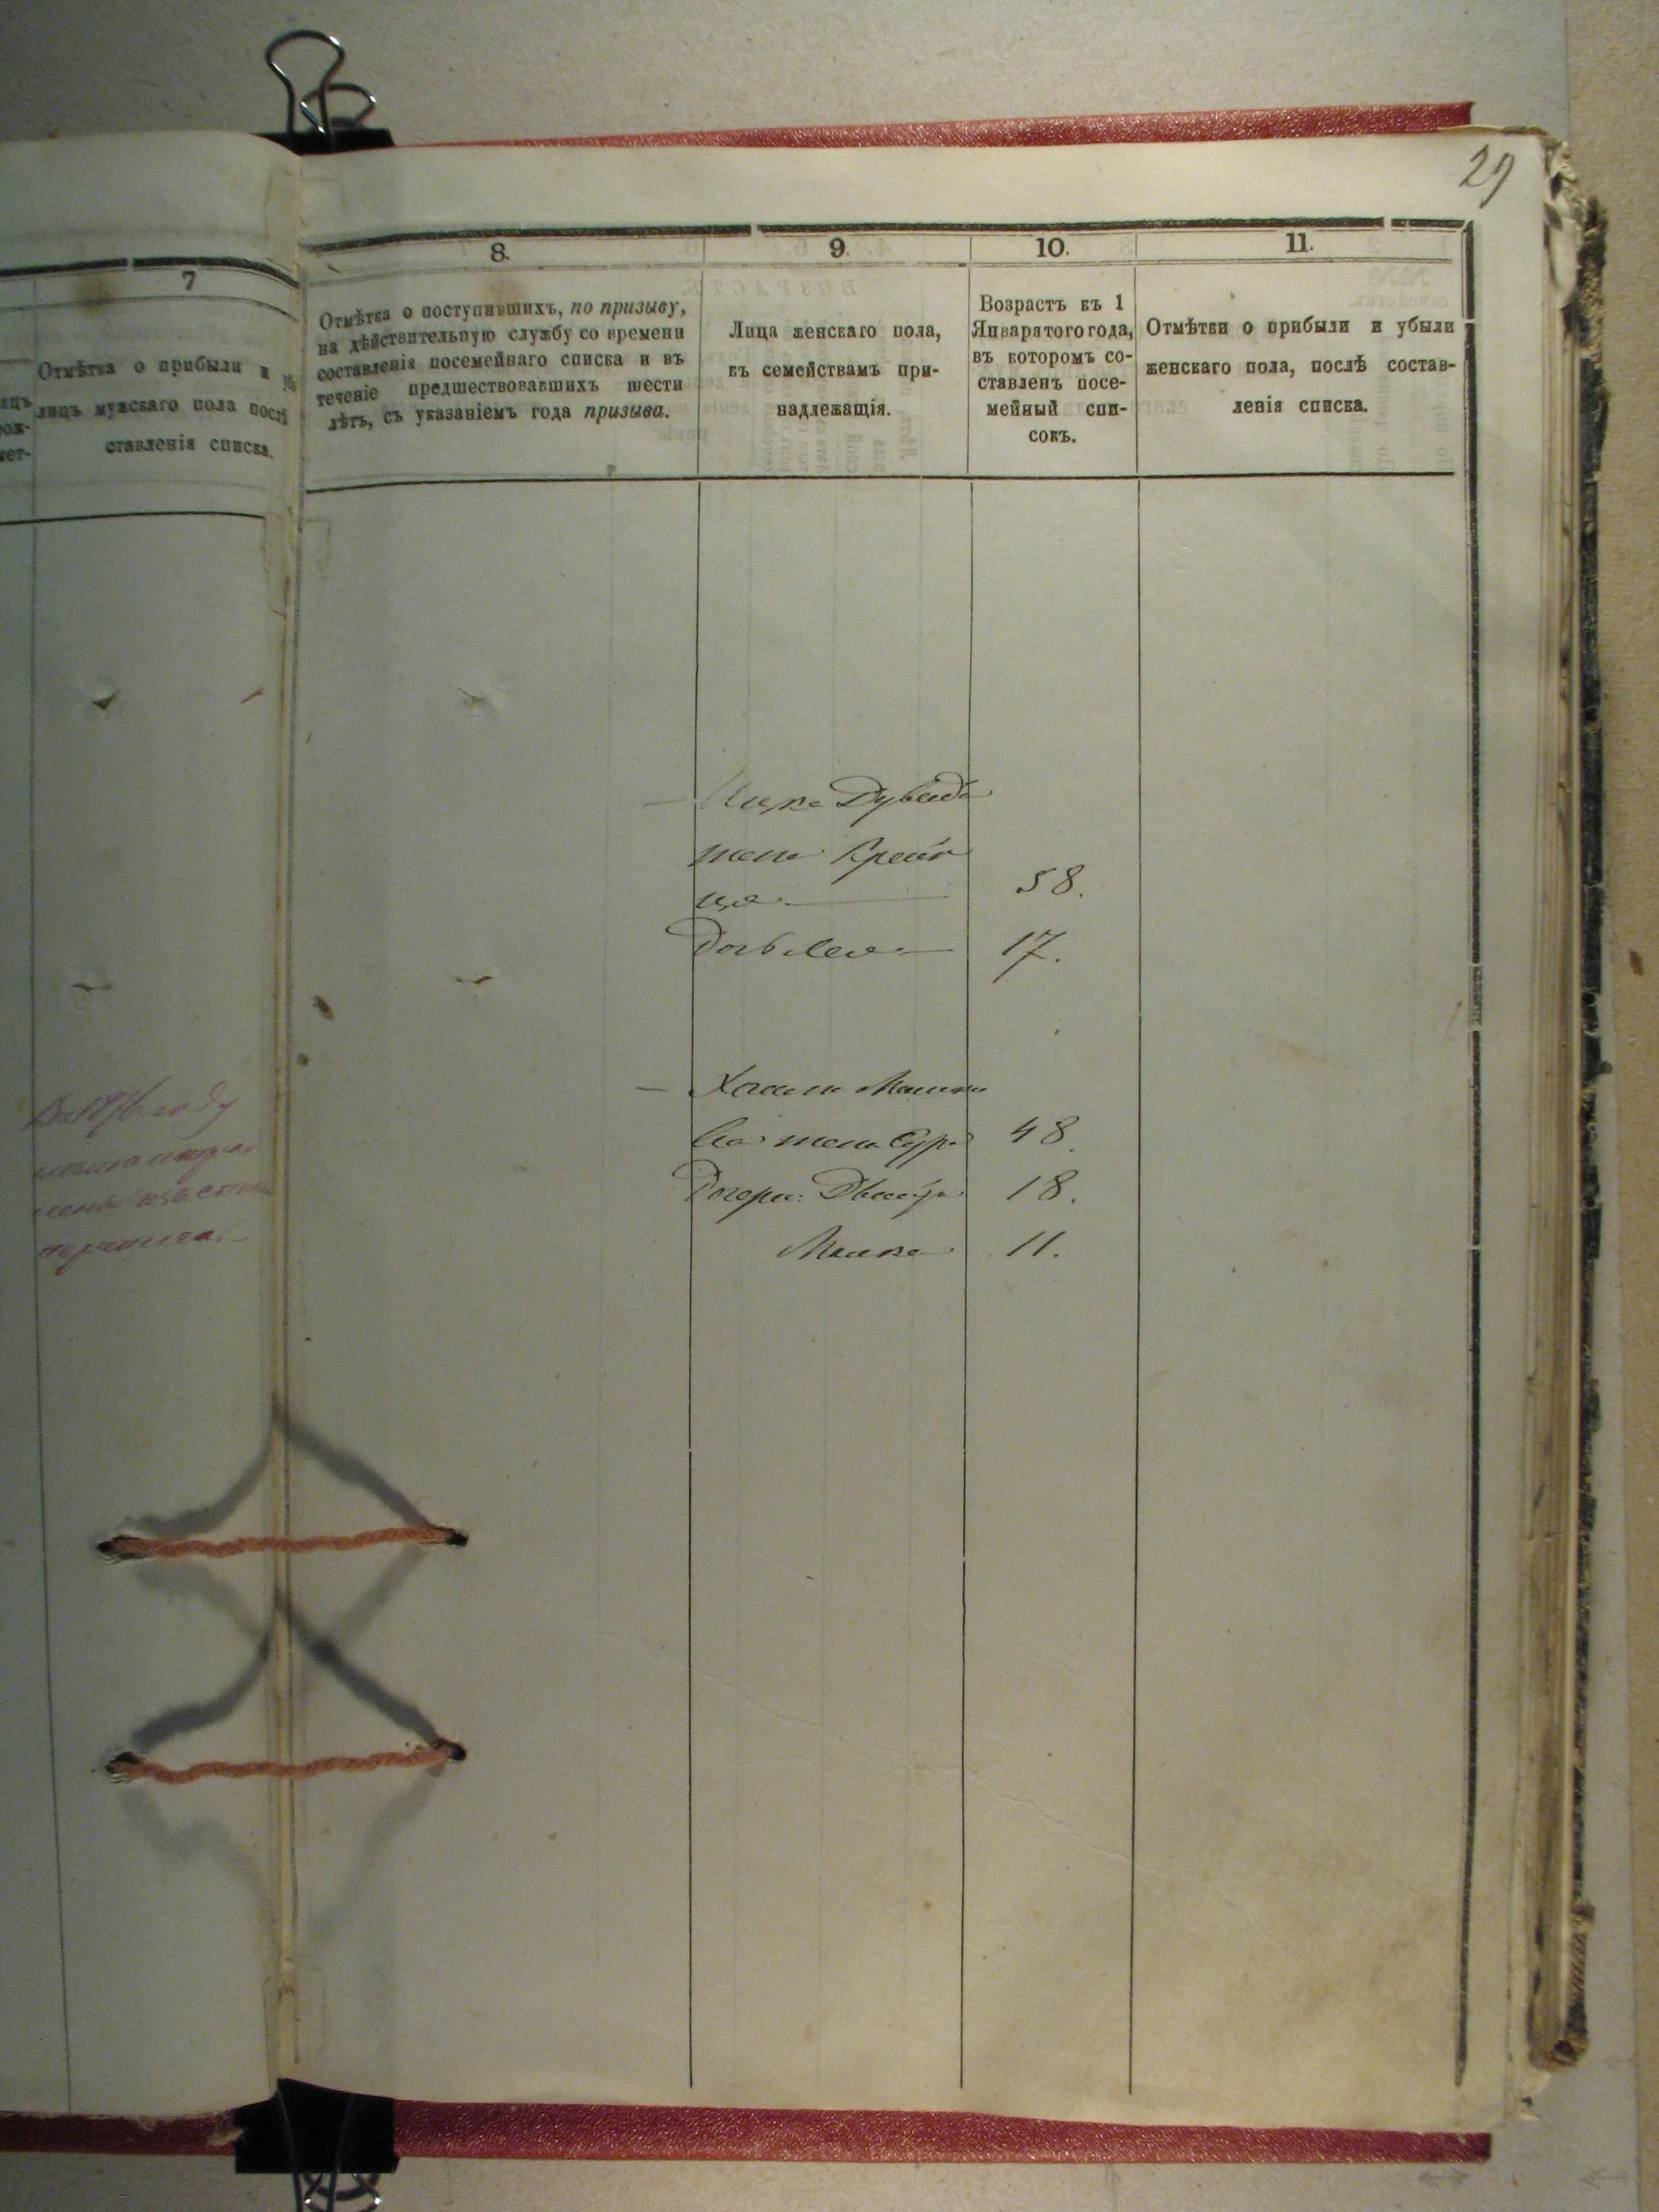 29
7
Отмѣтка о прибыли и
лицъ мужскаго пола послѣ
ставленія списка.
8.
Отмѣтка о поступившихъ, по призыву,
на дѣйствительную службу со времени
составленія посемейнаго списка и въ
теченіе предшествовавшихъ шести
лѣтъ, съ указаніемъ года призыва.
9.
Лица женскаго пола,
къ семействамъ при-
надлежащія.
10.
Возрастъ къ 1
Января того года,
въ которомъ со-
ставленъ посе-
мейный спи-
сокъ.
11.
Отмѣтки о прибыли и убыли
женскаго пола, послѣ состав-
ленія списка.
Ицка Дувида
жена Крейн
ца 58.
Дочь Лея 17.
жена Сура 48.
Дочери: Двейра 18.
Малка 11.